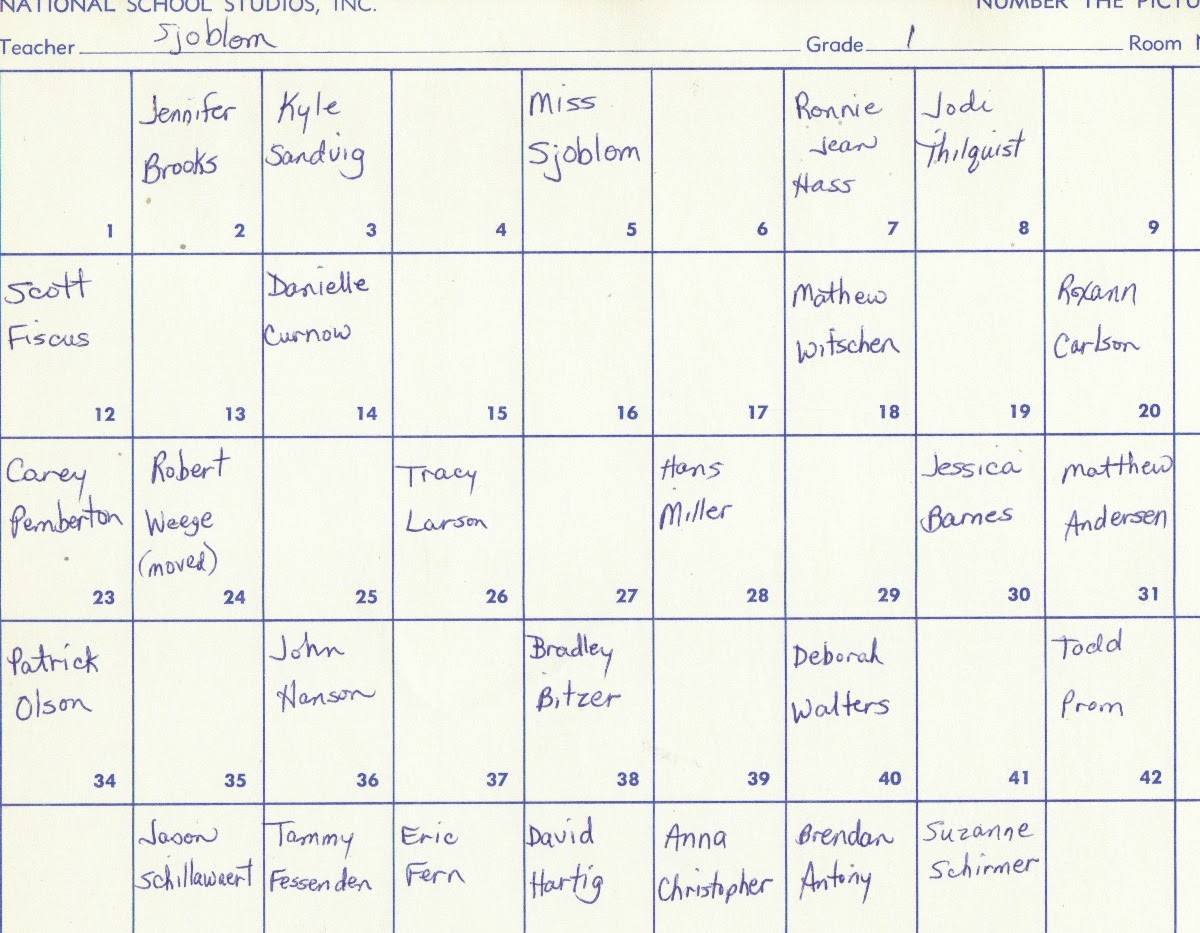 NATIONAL SCHOOL STUDIOS, INC. NUMBER THE PICTU
Teacher Sjoblom Grade 1 Room
Jennifer Brooks Kyle Sandvig Miss Sjoblom Ronnie Jean Hass Jodi Thilquist
1 2 3 4 5 6 7 8 9
Scott Fiscus Danielle Curnow Mathew Witschen Roxann Carlson
12 13 14 15 16 17 18 19 20
Carey Pemberton Robert Weege (moved) Tracy Larson Hans Miller Jessica Barnes Matthew Andersen
23 24 25 26 27 28 29 30 31
Patrick Olson John Hanson Bradley Bitzer Deborah Walters Todd Prom
34 35 36 37 38 39 40 41 42
Jason Schillawaert Tammy Fessenden Eric Fern David Hartig Anna Christopher Brendan Antony Suzanne Schirmer